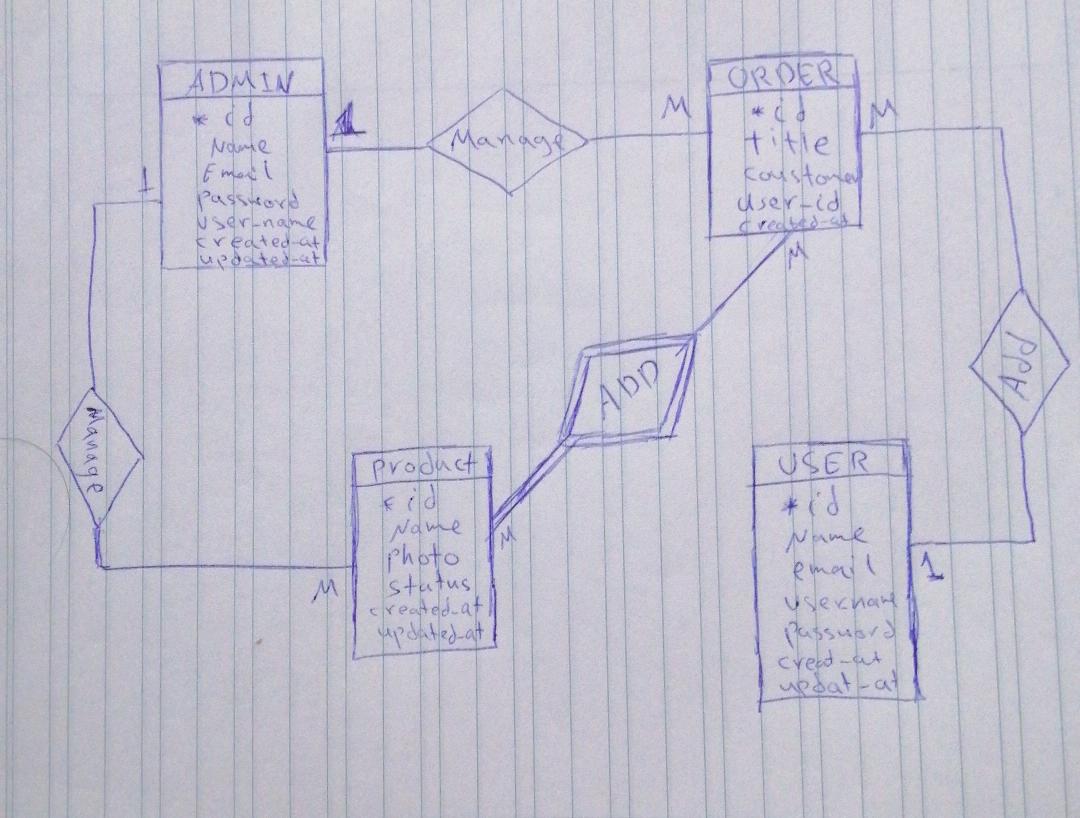 ADMIN
* id
Name
Email
password
user-name
created-at
updated-at
1
1
Manage
M
ORDER
* id
title
coustomer
user-id
created-at
M
M
Manage
M
product
* id
Name
photo
status
created-at
updated-at
M
ADD
Add
USER
* id
Name
email
username
password
creat-at
updat-at
1